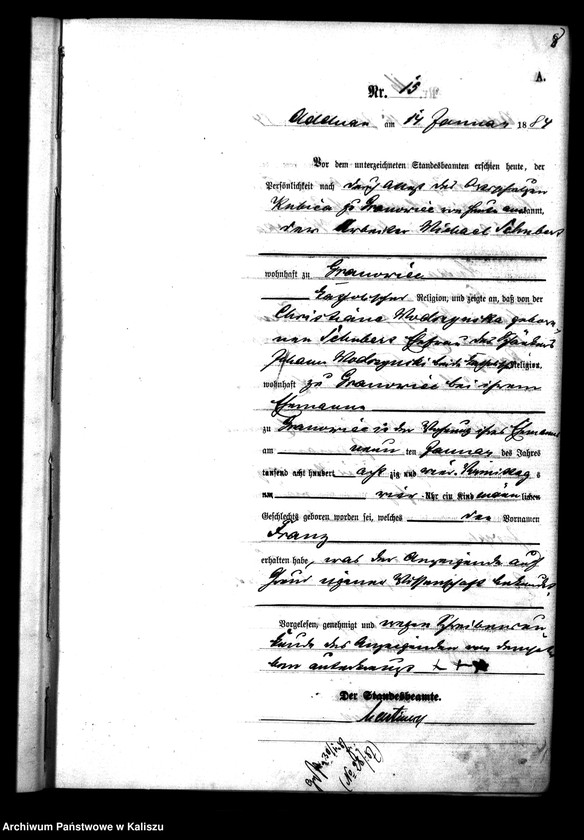 8
A.
Nr. 15
Adelnau am 14 Januar 1884
Vor dem unterzeichneten Standesbeamten erschien heute, der
Persönlichkeit nach durch Attest des
Kubica zu Granowiec von heute anerkannt,
der Arbeiter Michael Schubert
wohnhaft zu Granowiec
katholischer Religion, und zeigte an, daß von der
Christiane Wodczynska gebore-
nen Schubert Ehefrau des
Johann Wodczynski beide katholisch Religion,
wohnhaft zu Granowiec bei ihrem
Ehemanne
zu Granowiec in der Wohnung ihres Ehemanns
am neun ten Januar des Jahres
tausend acht hundert acht zig und vier Vormittag s
um vier Uhr ein Kind männ lichen
Geschlechts geboren worden sei, welches den Vornamen
Franz
erhalten habe, was der Anzeigende auf
Grund eigener Wissenschaft bekundet.
Vorgelesen, genehmigt und wegen Schreibensun-
kunde des Anzeigenden von demsel-
ben unterkreuzt + + +
Der Standesbeamte.
Archiwum Państwowe w Kaliszu